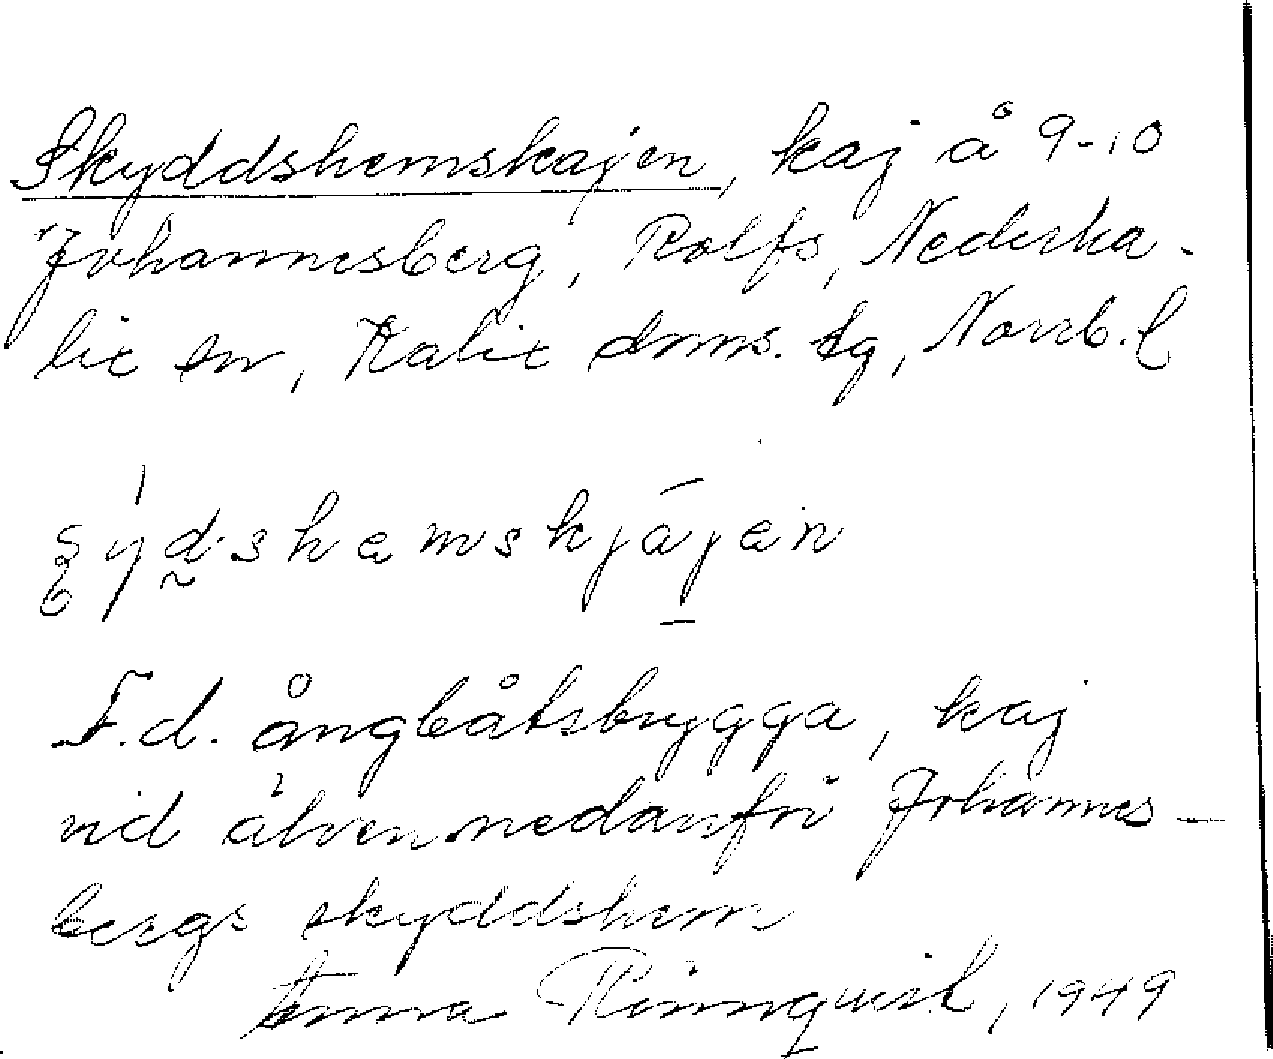 Skyddshemskajen, kaj å 9-10
Johannesberg, Rolfs, Nederka-
lix sn, Kalix doms. tg, Norrb. l
ʂýdshemskjájen
F.d. ångbåtsbrygga, kaj
vid älven nedanför Johannes-
bergs skyddshem
Anna Rönnqvist, 1949